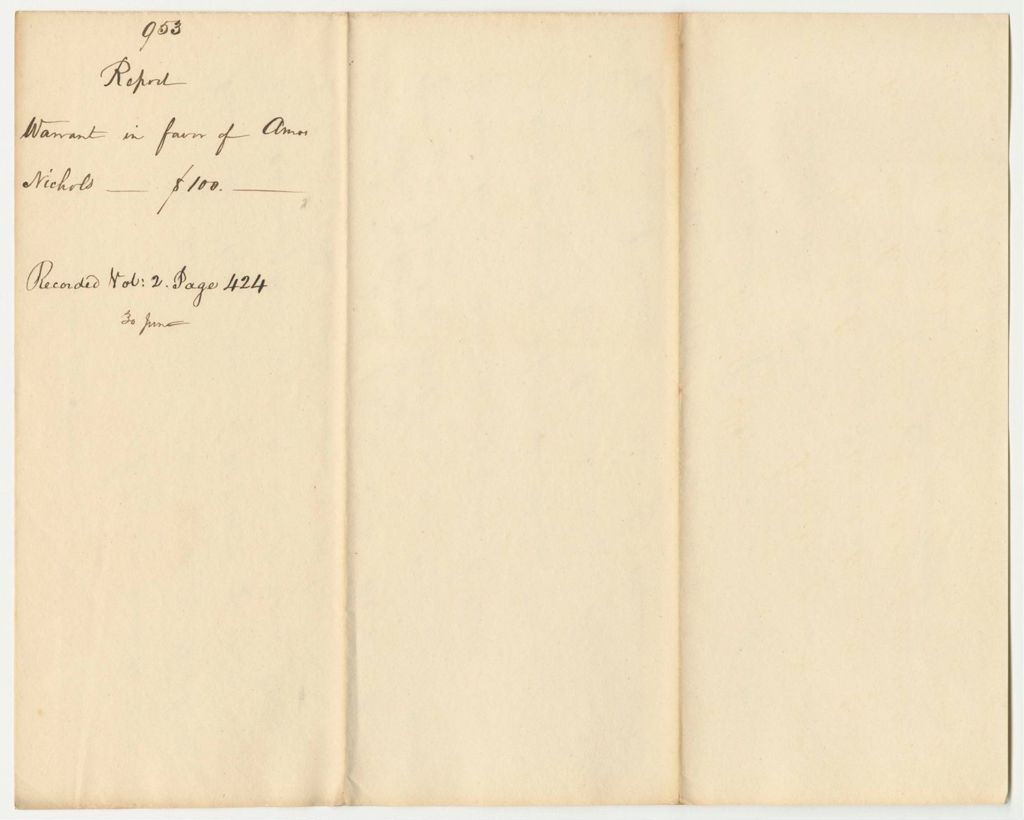 953
Report
Warrant in favor of Amos
Nichols — $100. —
Recorded Vol: 2. Page 424
30 June